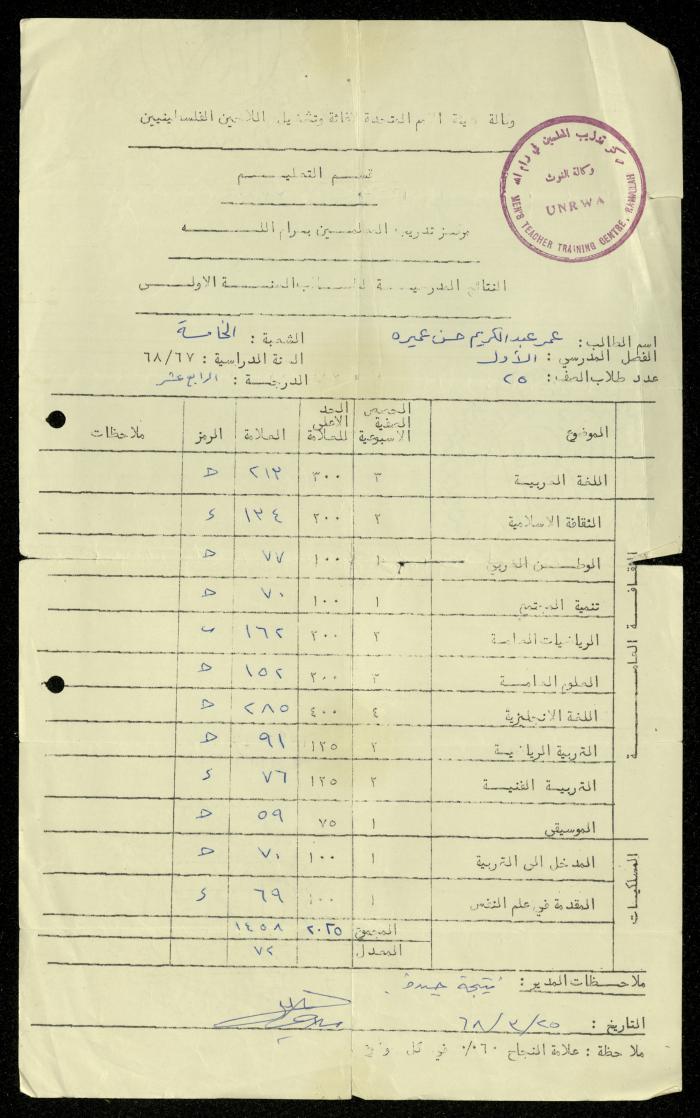 وكالة هيئة الامم المتحدة لاغاثة وتشغيل اللاجئين الفلسطينيين
مركز تدريب المعلمين في رام الله
وكالة الغوث
UNRWA
MEN'S TEACHER TRAINING CENTRE, RAMALLAH
قسم التعليم
مركز تدريب المعلمين برام الله
النتائج المدرسية لطلاب السنة الاولى
اسم الطالب: عمر عبد الكريم حسن عميره الشعبة: الخامسة
الفصل المدرسي: الأول السنة الدراسية: ٦٨/٦٧
عدد طلاب الصف: ٢٥ الدرجة: الرابع عشر
الموضوع الحصص الصفية الاسبوعية الحد الاعلى للعلامة العلامة الرمز ملاحظات
الثقافة العامة
اللغة العربية ٣ ٣٠٠ ٢١٣ ح
الثقافة الاسلامية ٢ ٢٠٠ ١٣٤ د
الوطن العربي ١ ١٠٠ ٧٧ ح
تنمية المجتمع ١ ١٠٠ ٧٠ ح
الرياضيات العامة ٢ ٢٠٠ ١٦٢ ب
العلوم العامة ٣ ٢٠٠ ١٥٢ ح
اللغة الانجليزية ٤ ٤٠٠ ٢٨٥ ح
التربية الرياضية ٢ ١٢٥ ٩١ ح
التربية الفنية ٢ ١٢٥ ٧٦ د
الموسيقى ١ ٧٥ ٥٩ ح
المسلكيات
المدخل الى التربية ١ ١٠٠ ٧٠ ح
المقدمة في علم النفس ١ ١٠٠ ٦٩ د
المجموع ٢٠٢٥ ١٤٥٨
المعدل ٧٢
ملاحظات المدير: نتيجة جيدة.
التاريخ: ٦٨/٣/٢٥
ملاحظة: علامة النجاح ٦٠٪ في كل